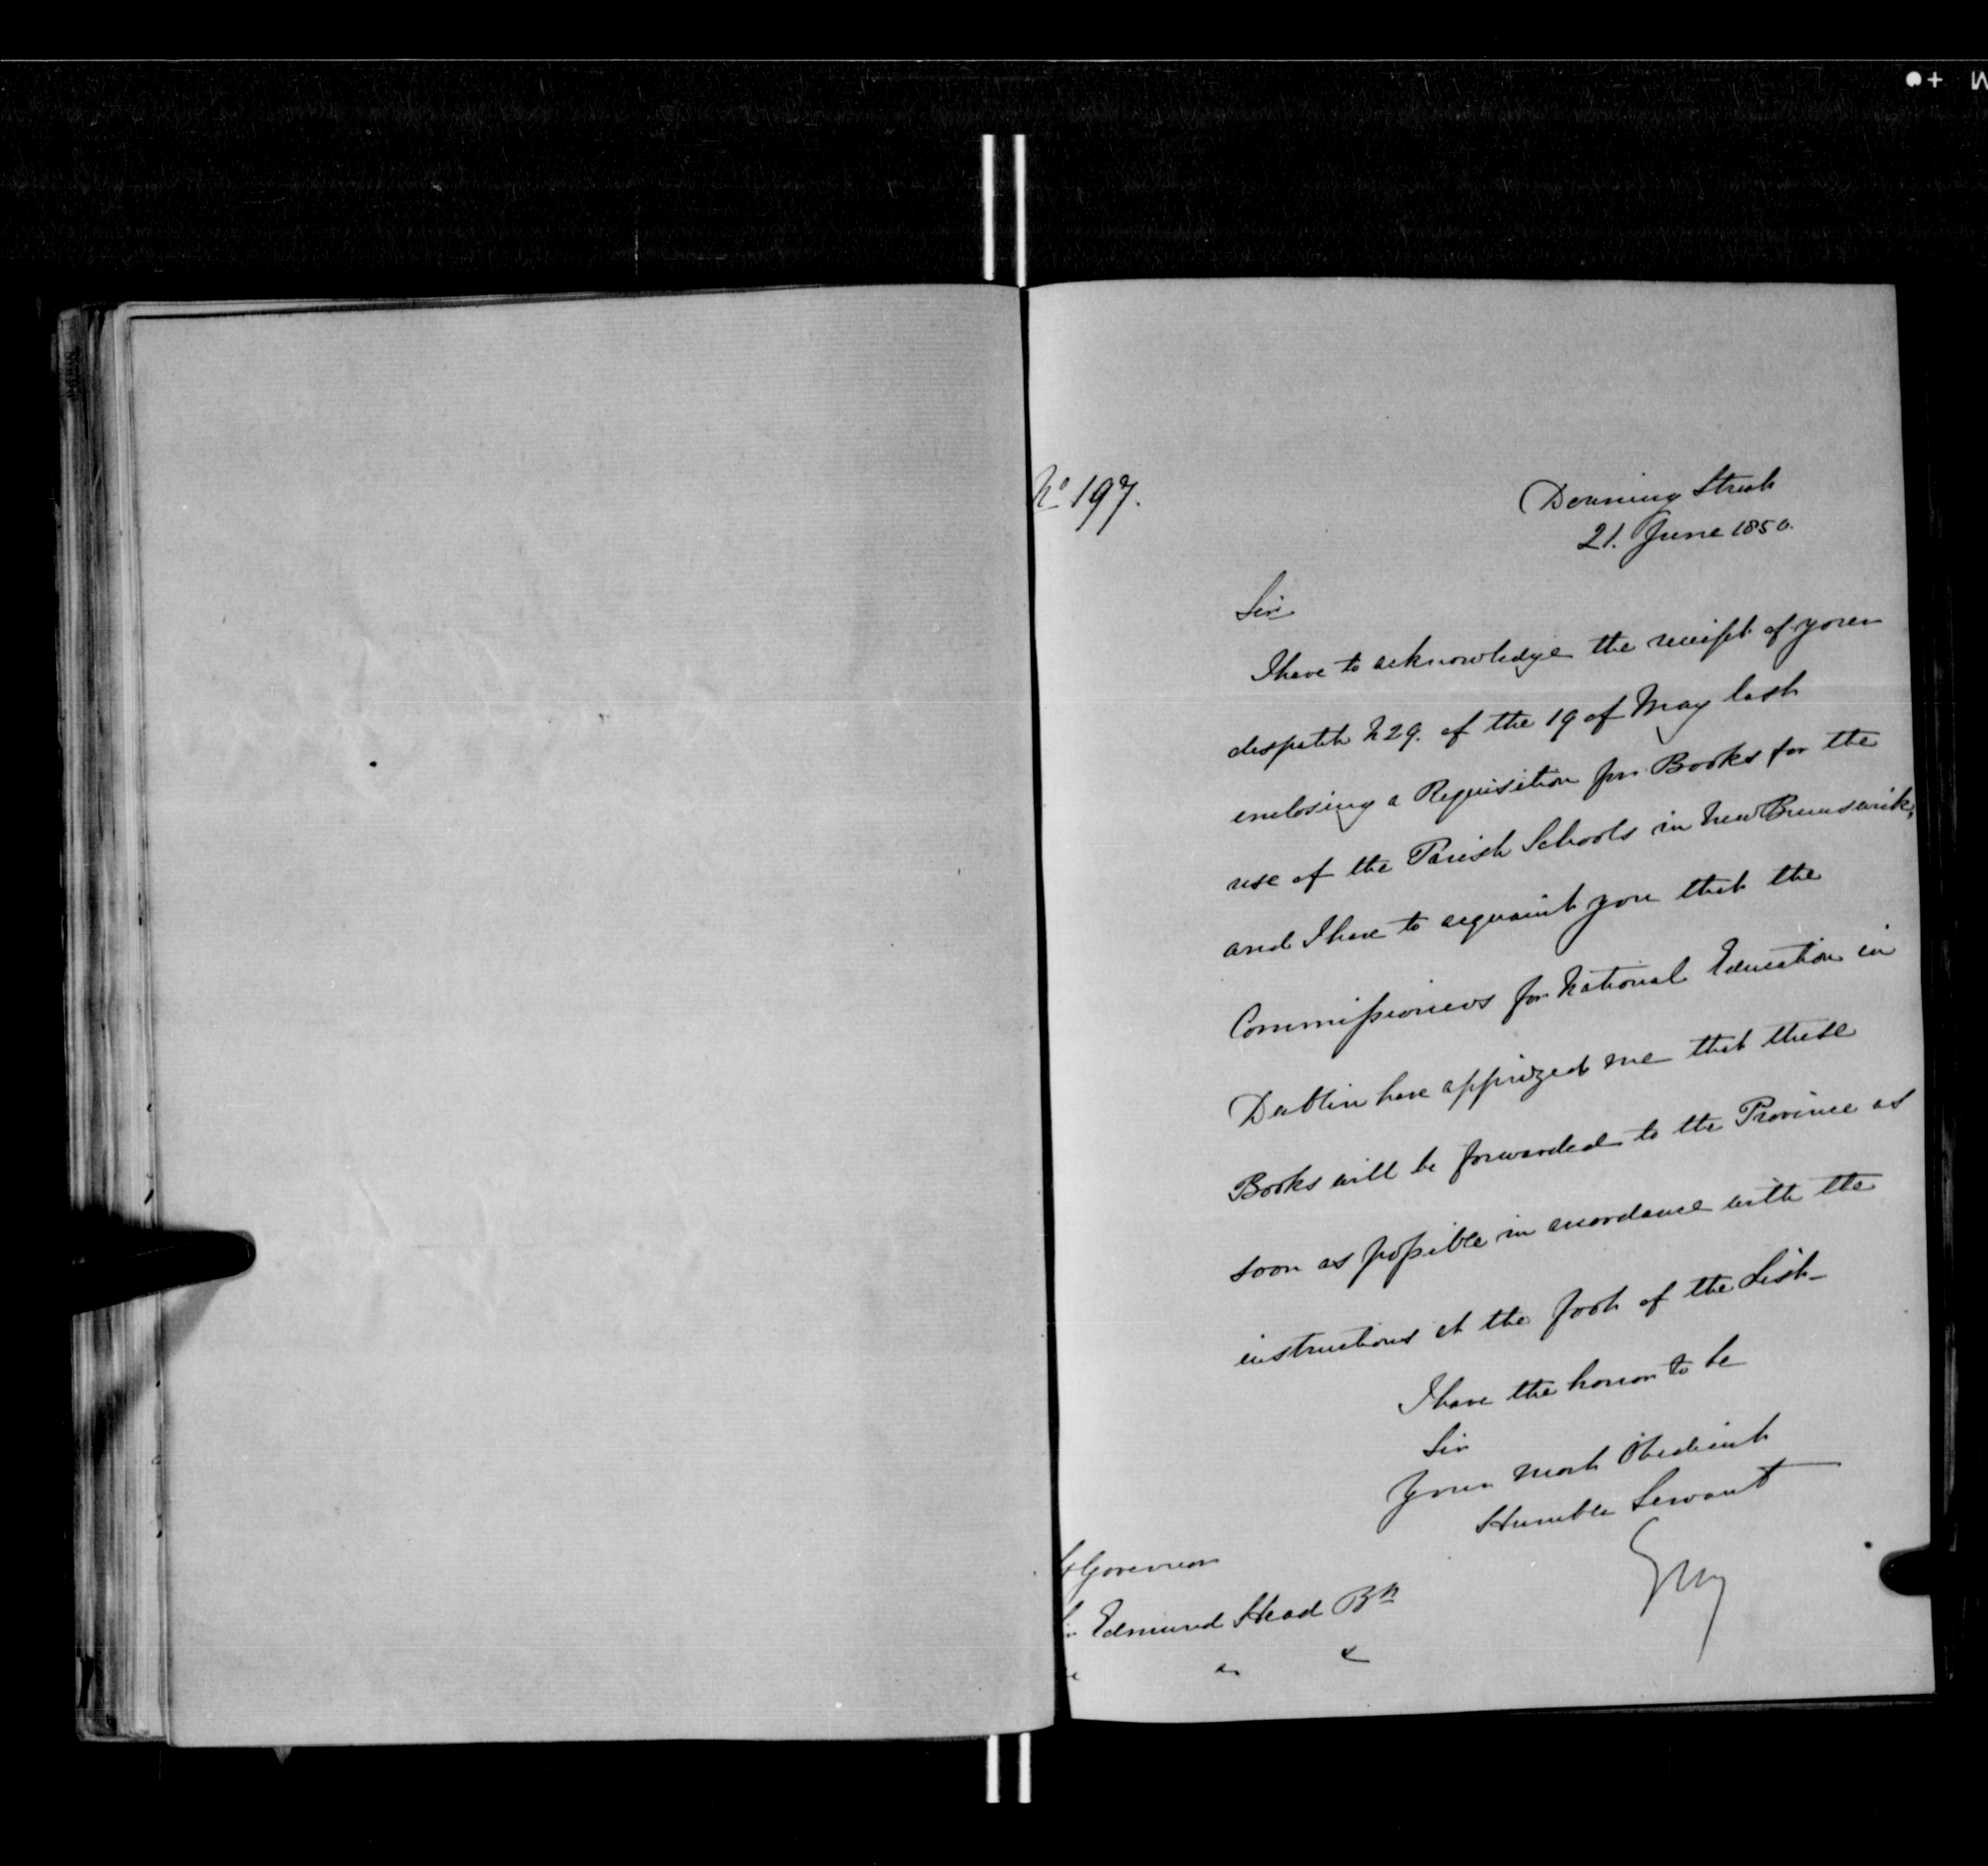 No 197.
Downing Street
21. June 1850.
Sir
I have to acknowledge the receipt of your
despatch N 29. of the 19 of May last
enclosing a Requisition for Books for the
use of the Parish Schools in New Brunswick,
and I have to acquaint you that the
Commissioners for National Education in
Dublin have apprized me that these
Books will be forwarded to the Province as
soon as possible in accordance with the
instructions at the foot of the List-
I have the honor to be
Sir
Your most Obedient
Humble Servant
Grey
Governor
Edmund Head Bt